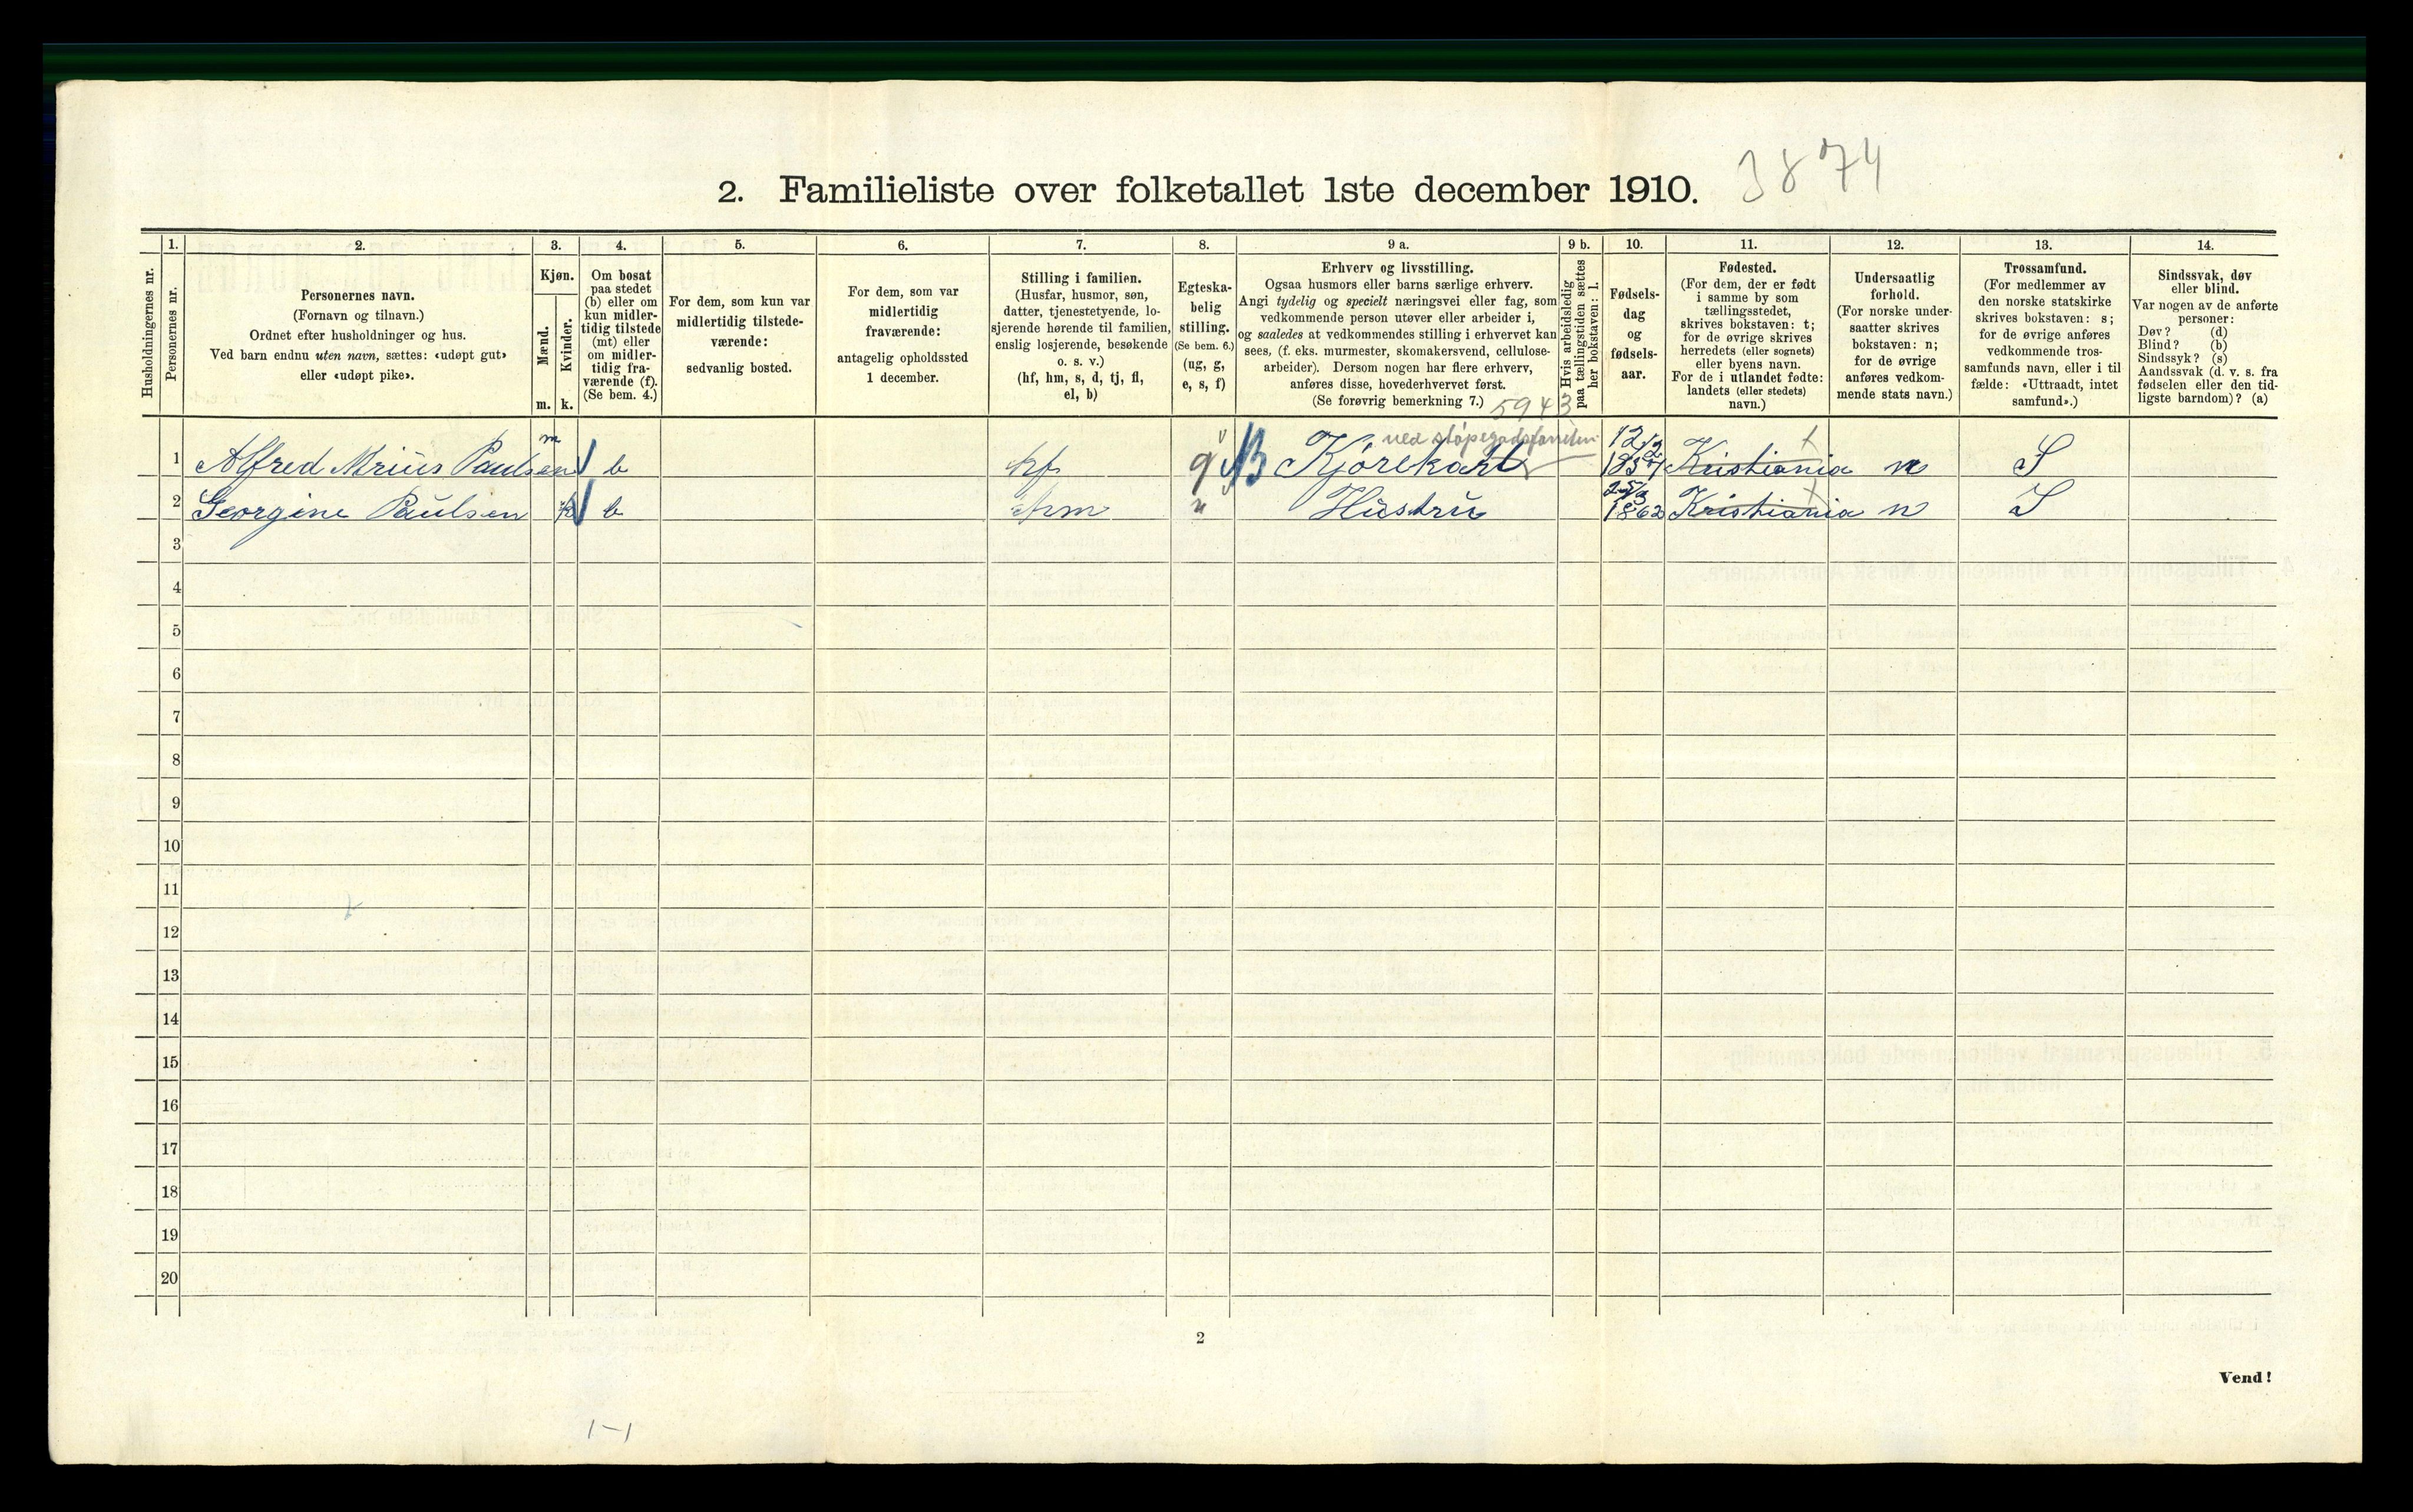 2. Familieliste over folketallet 1ste december 1910. 3874
Husholdningernes nr.
1.
Personernes nr.
2.
Personernes navn.
(Fornavn og tilnavn.)
Ordnet efter husholdninger og hus.
Ved barn endnu uten navn, sættes: «udøpt gut»
eller «udøpt pike».
3.
Kjøn.
Mænd.
Kvinder.
m. k.
4.
Om bosat
paa stedet
(b) eller om
kun midler-
tidig tilstede
(mt) eller
om midler-
tidig fra-
værende (f).
(Se bem. 4.)
5.
For dem, som kun var
midlertidig tilstede-
værende:
sedvanlig bosted.
6.
For dem, som var
midlertidig
fraværende:
antagelig opholdssted
1 december.
7.
Stilling i familien.
(Husfar, husmor, søn,
datter, tjenestetyende, lo-
sjerende hørende til familien,
enslig losjerende, besøkende
o. s. v.)
(hf, hm, s, d, tj, fl,
el, b)
8.
Egteska-
belig
stilling.
(Se bem. 6.)
(ug, g,
e, s, f)
9 a.
Erhverv og livsstilling.
Ogsaa husmors eller barns særlige erhverv.
Angi tydelig og specielt næringsvei eller fag, som
vedkommende person utøver eller arbeider i,
og saaledes at vedkommendes stilling i erhvervet kan
sees, (f. eks. murmester, skomakersvend, cellulose-
arbeider). Dersom nogen har flere erhverv,
anføres disse, hovederhvervet først.
(Se forøvrig bemerkning 7.)
5943
9 b.
Hvis arbeidsledig
paa tællingstiden sættes
her bokstaven: l.
10.
Fødsels-
dag
og
fødsels-
aar.
11.
Fødested.
(For dem, der er født
i samme by som
tællingsstedet,
skrives bokstaven: t;
for de øvrige skrives
herredets (eller sognets)
eller byens navn.
For de i utlandet fødte:
landets (eller stedets)
navn.)
12.
Undersaatlig
forhold.
(For norske under-
saatter skrives
bokstaven: n;
for de øvrige
anføres vedkom-
mende stats navn.)
13.
Trossamfund.
(For medlemmer av
den norske statskirke
skrives bokstaven: s;
for de øvrige anføres
vedkommende tros-
samfunds navn, eller i til
fælde: «Uttraadt, intet
samfund».)
14.
Sindssvak, døv
eller blind.
Var nogen av de anførte
personer:
Døv? (d)
Blind? (b)
Sindssyk? (s)
Aandssvak (d. v. s. fra
fødselen eller den tid-
ligste barndom)? (a)
1 Alfred Mrius Paulsen m b hf g B Kjörekarl ved 12/12 Kristiania t n S
2 Georgine Paulsen k b hm Hustru 1862 Kristiania t n S
3
4
5
6
7
8
9
10
11
12
13
14
15
16
17
18
19
20
2
Vend!
1-1